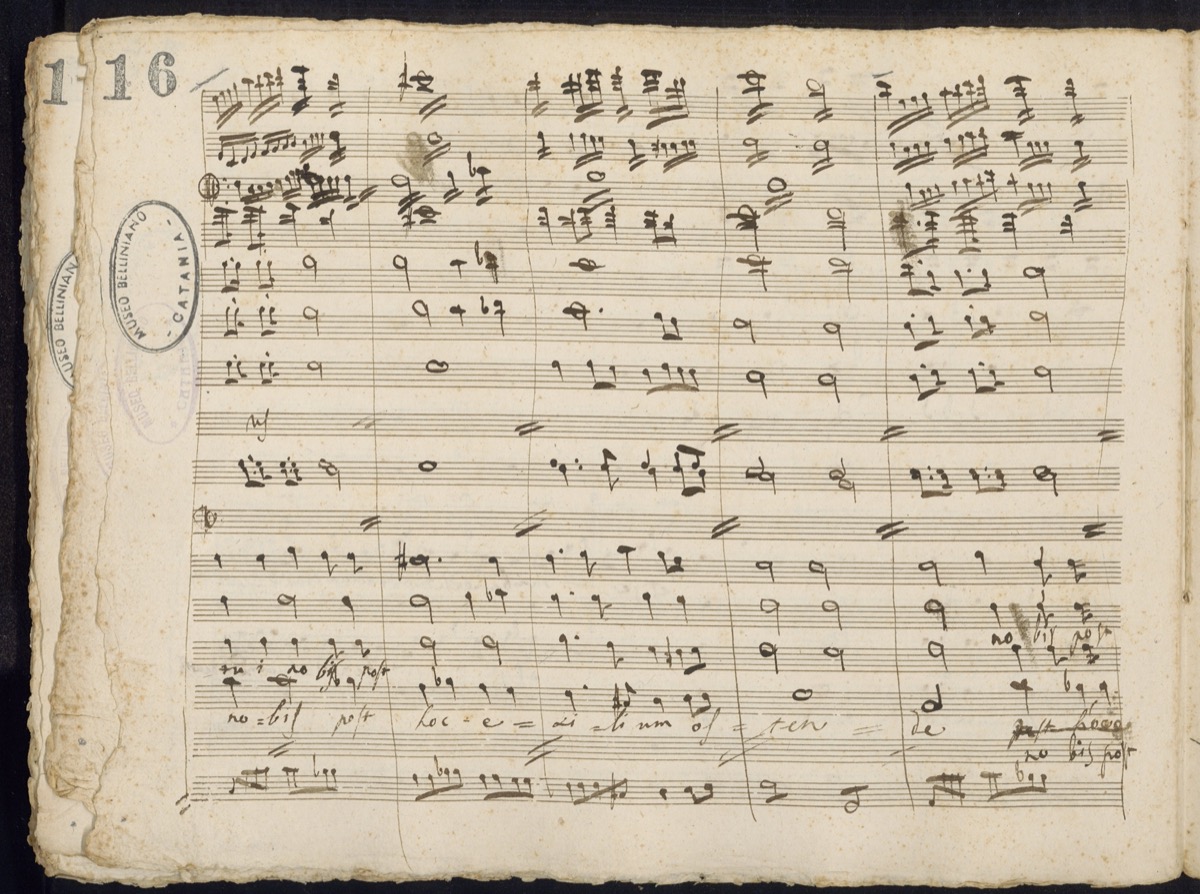 116
1
MUSEO BELLINIANO
- CATANIA -
USEO BELLINIAN
no bis post
no bis post
no = bis post hoc = e = xi = li um os = ten = de post hoc
no bis post